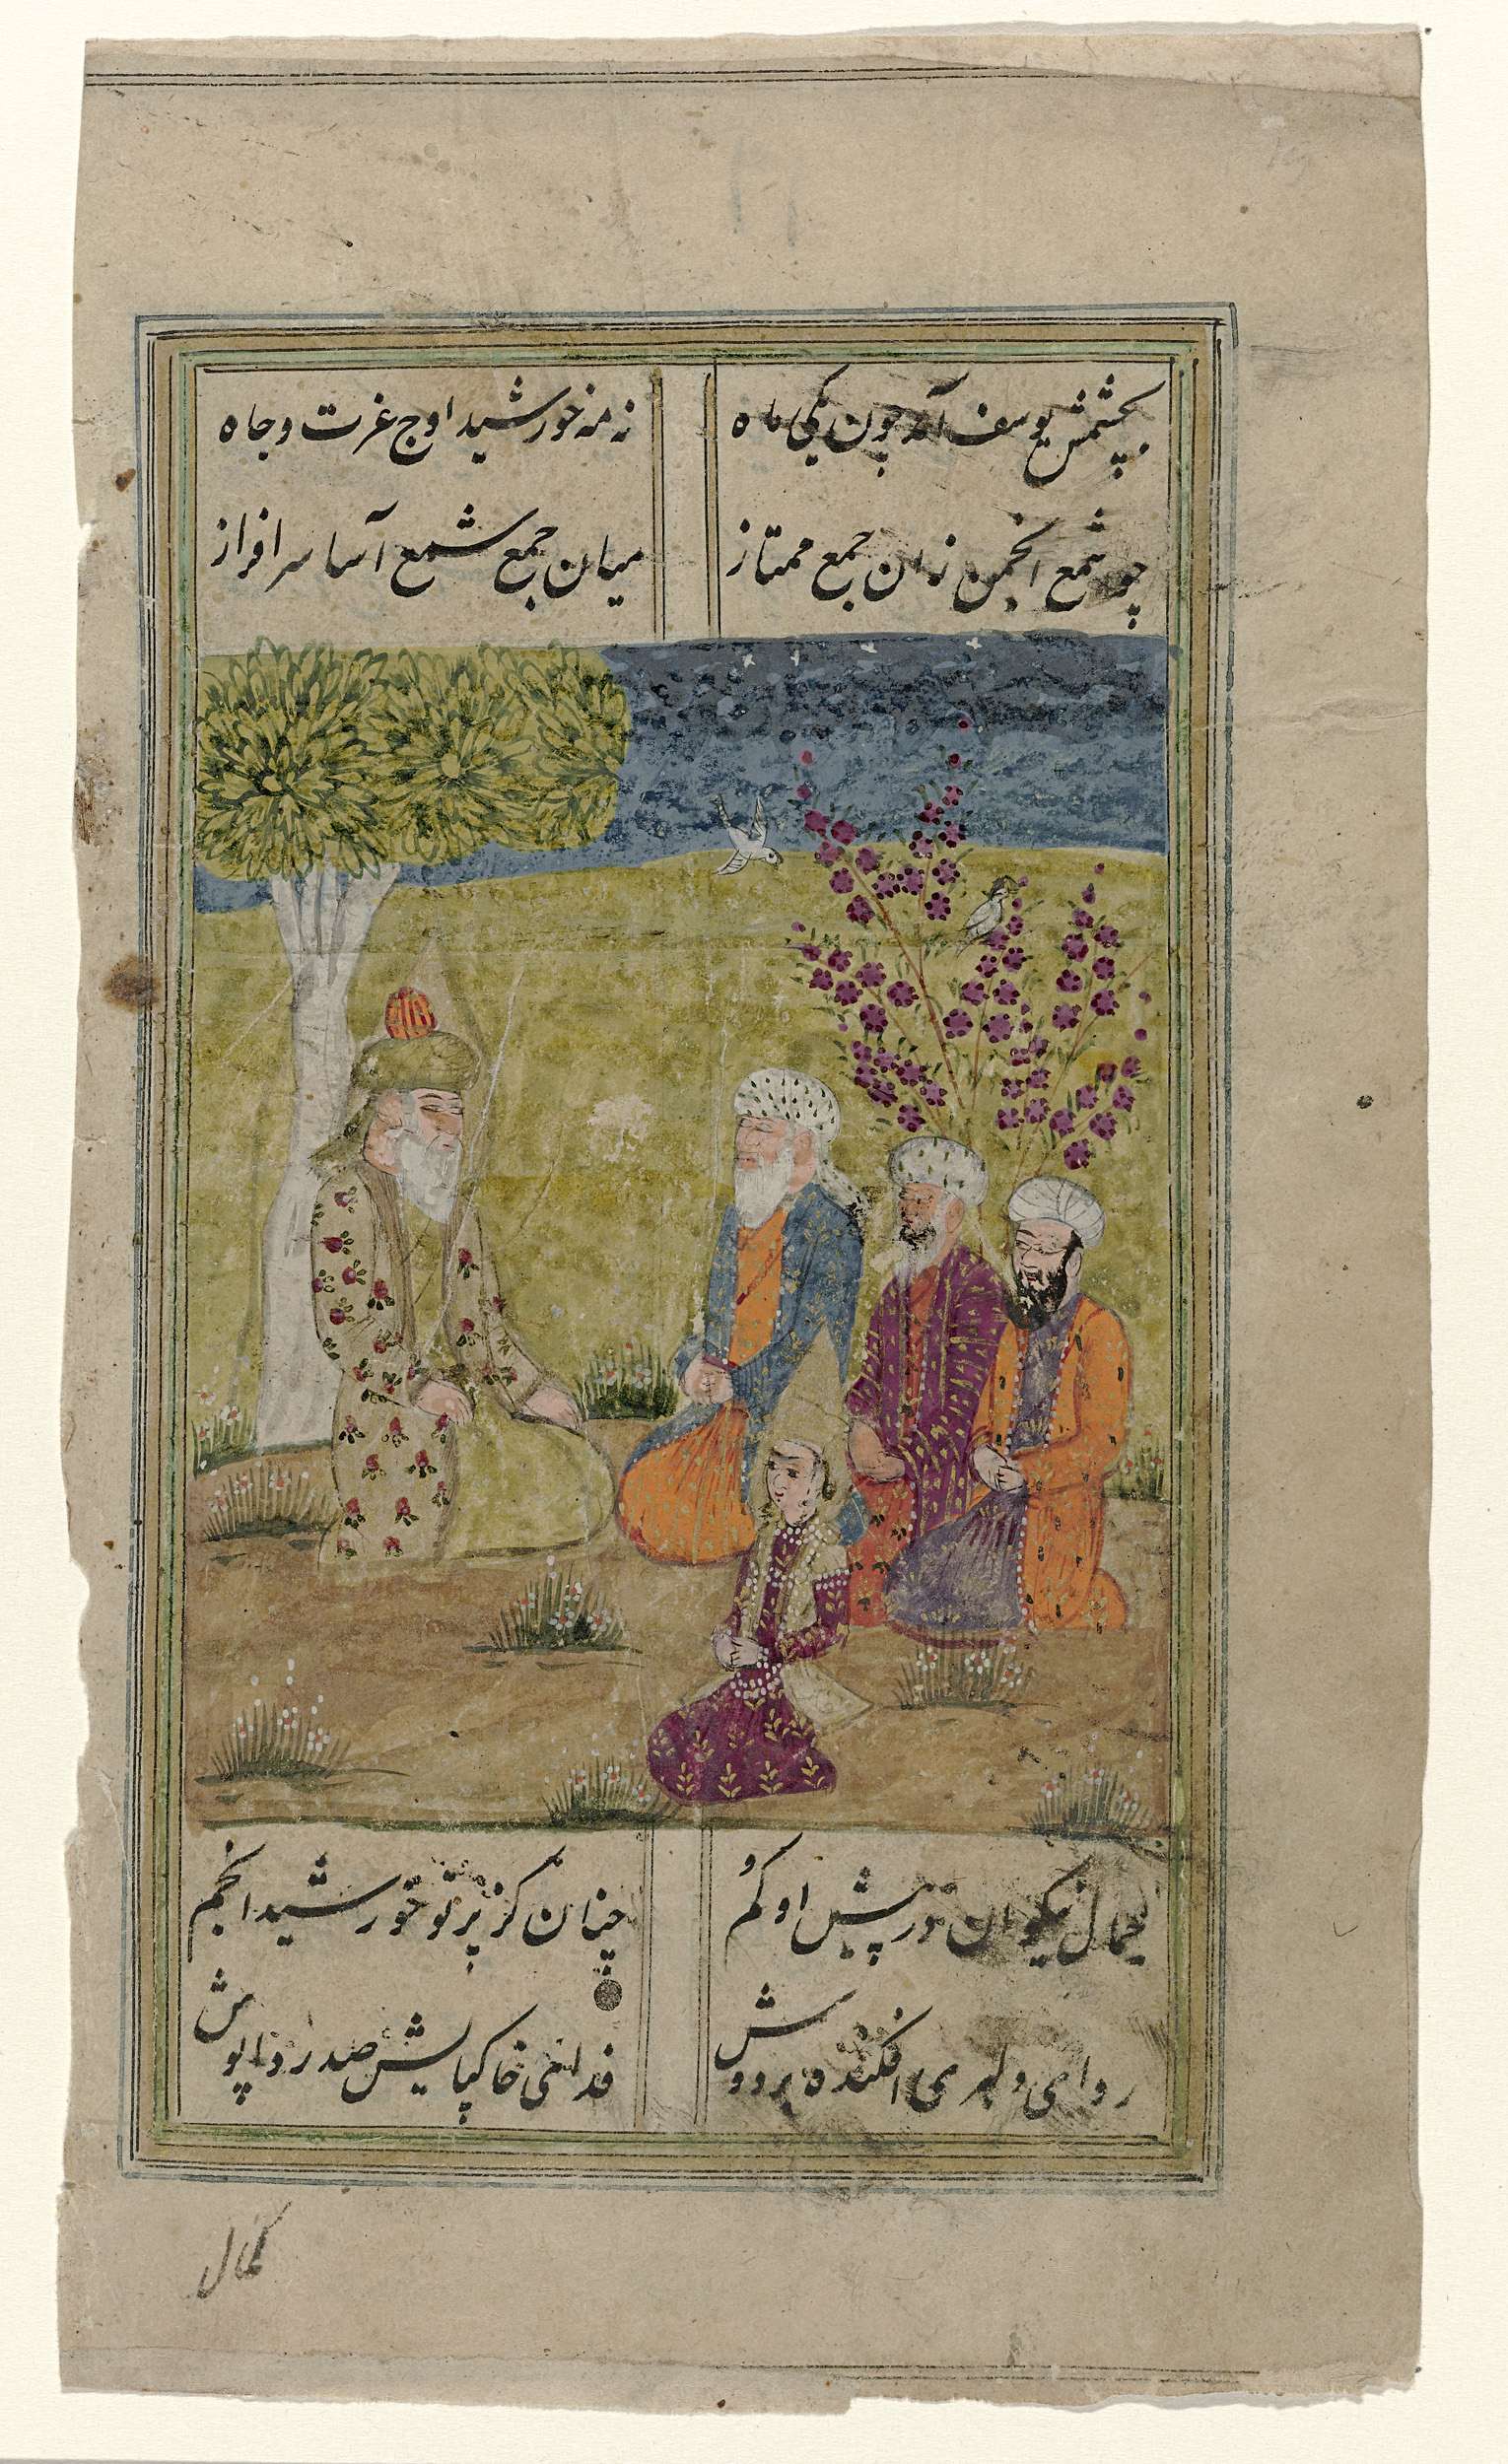 بچشمش یوسف آمد چون یکی ماه
نه مه خورشید اوج عزت و جاه
چو شمع انجمن زان جمع ممتاز
میان جمع شمع آسا سرافراز
جمال نیکوان در پیش او گم
چنان کز پرتو خورشید انجم
ردای دلبری افکنده بر دوش
فدای خاکپایش صد ردا پوش
کمال